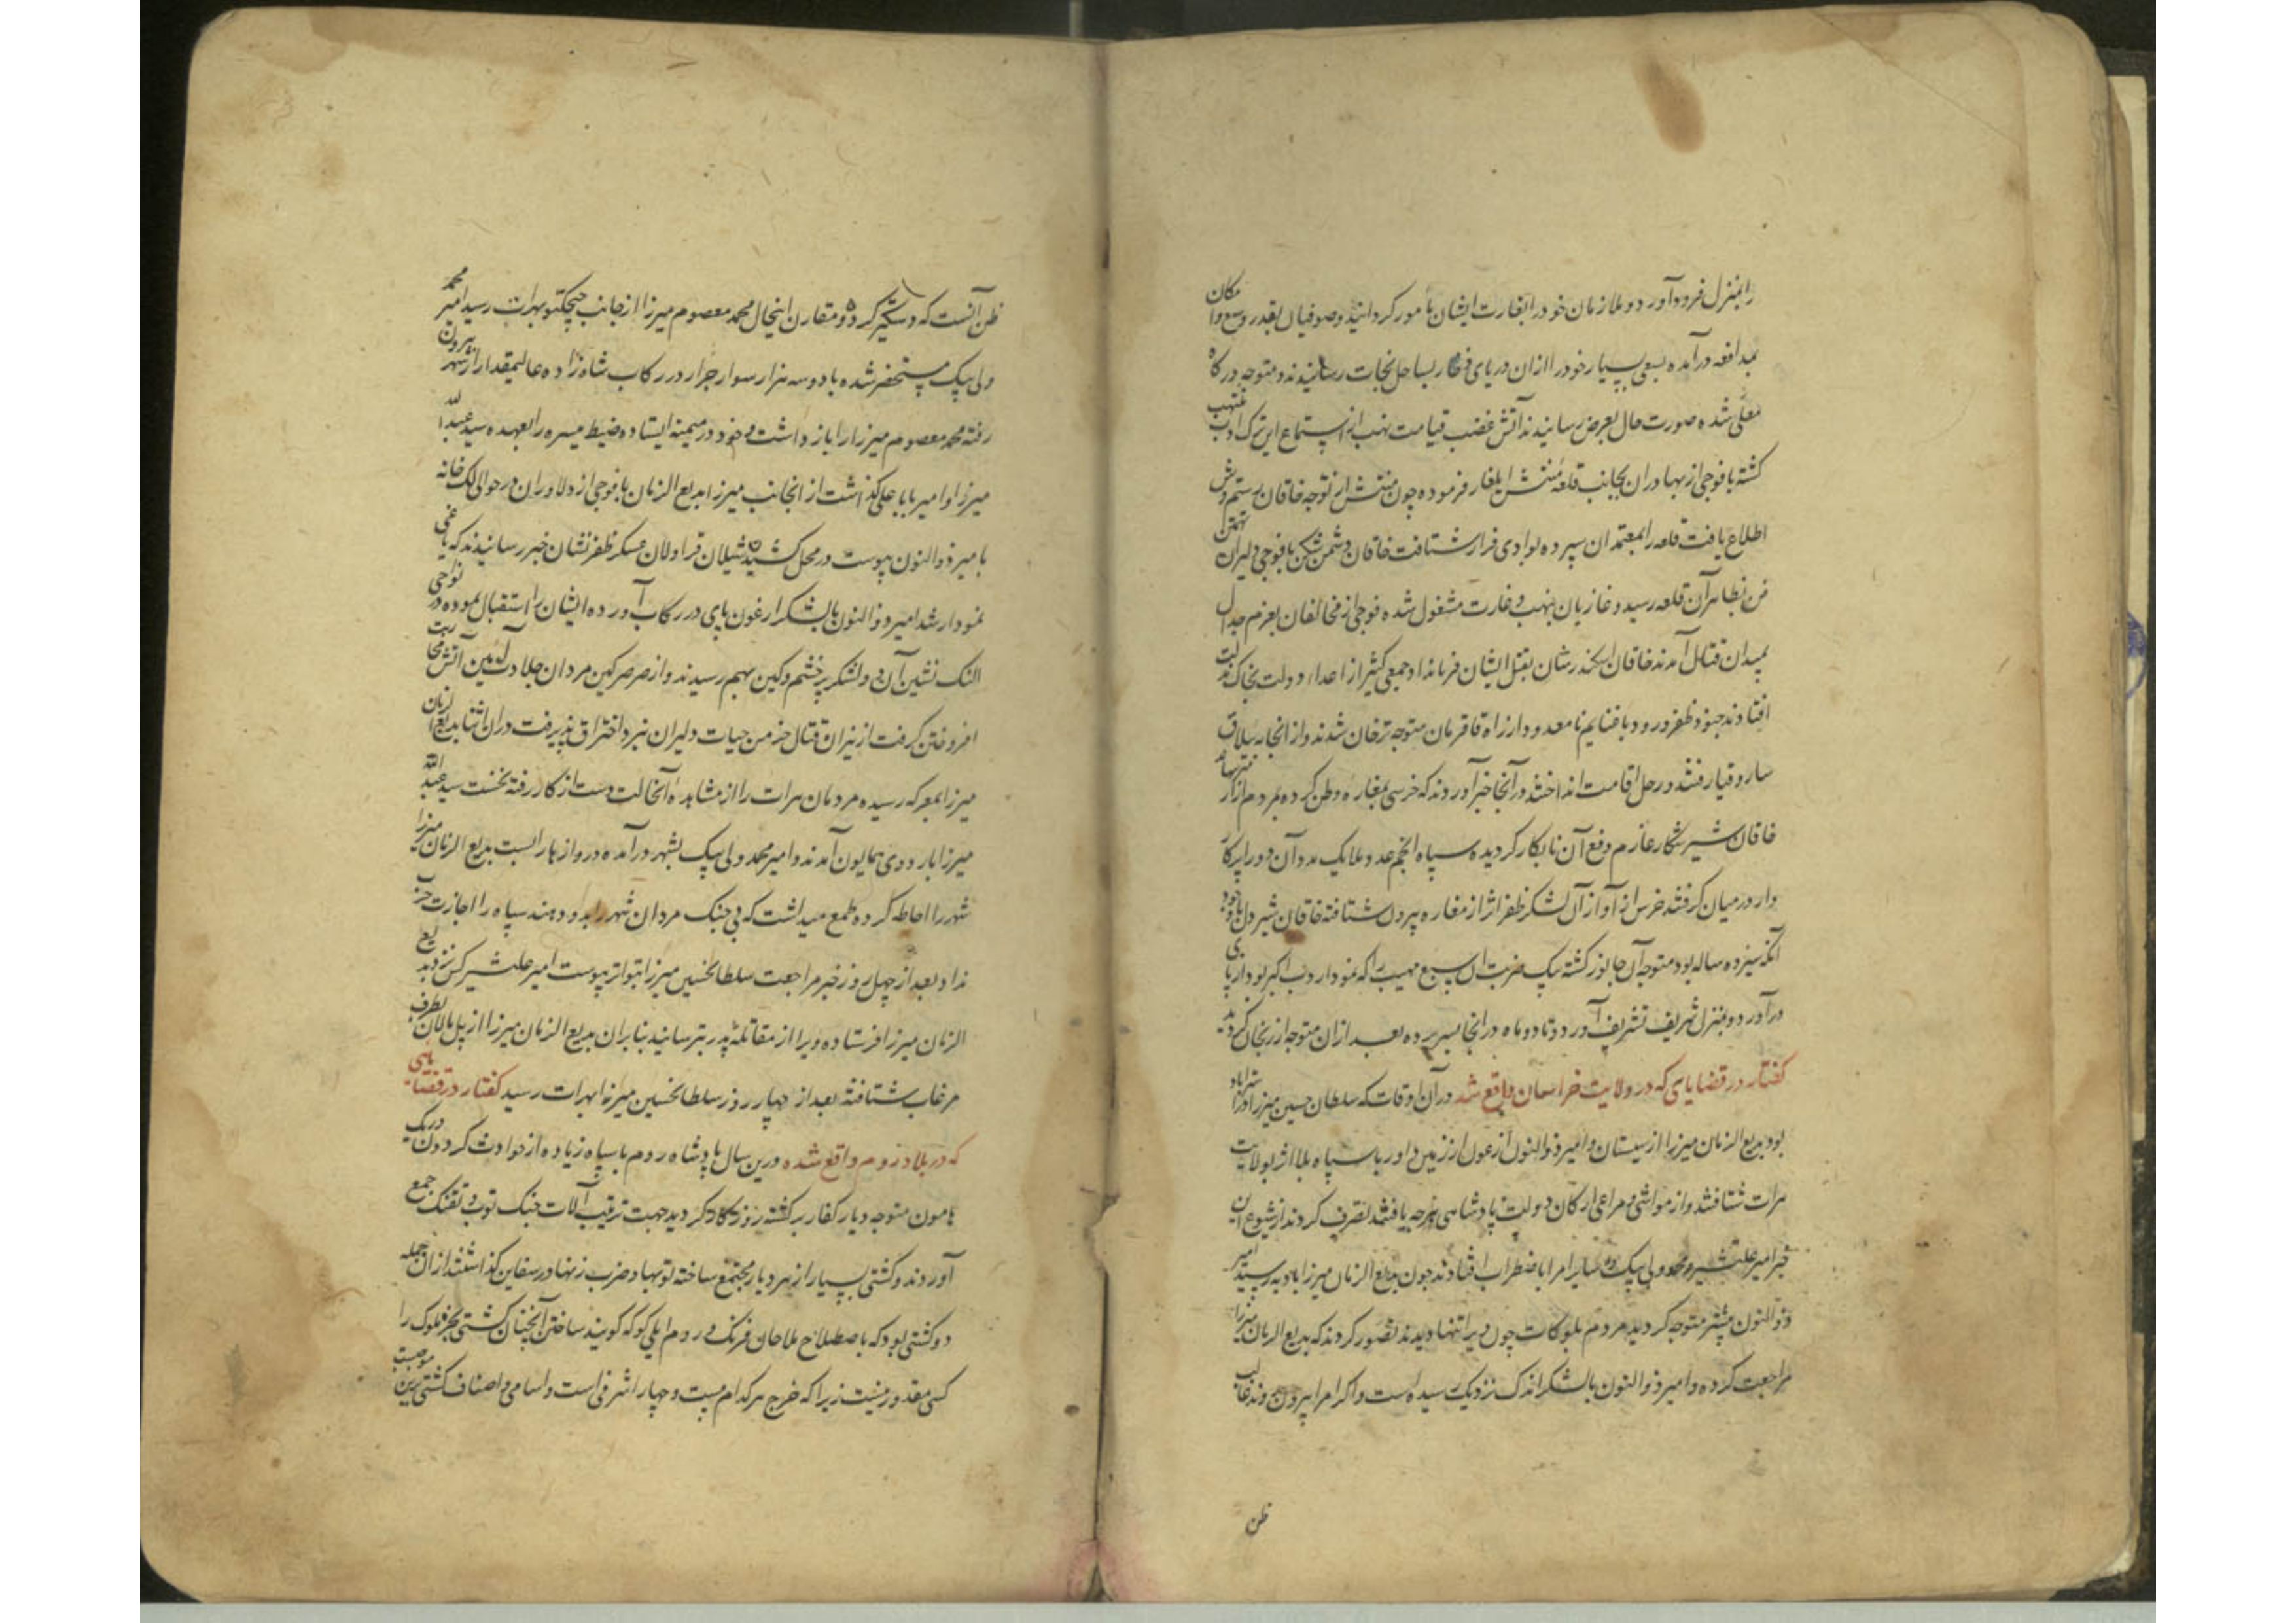 را بمنزل فرود آورد و ملازمان خود را بغارت ایشان مامور کردانید و صوفیان بقدر وسع و امکان
بمدافعه درآمده بسعی بسیار خود را ازان دریای زخار بساحل نجات رسانیدند و متوجه درکاه
معلی شده صورت حال بعرض رسانیدند آتش غضب قیامت لهب از استماع این ترک ادب ملتهب
کشته با فوجی از بهادران بجانب قلعه منتش ایلغار فرموده چون منتش از توجه خاقان رستم وش
اطلاع یافت قلعه را بمعتمدان سپرده بوادی فرار شتافت خاقان دشمن شکن با فوجی دلیران تهمتن
فن بظاهر آن قلعه رسید و غازیان بنهب و غارت مشغول شده فوجی از مخالفان بعزم جدال
بمیدان قتال آمدند خاقان اسکندر شان بقتل ایشان فرمانداد و جمعی کثیر از اعداء دولت بخاک مذلت
افتادند جنود ظفر ورود با غنایم نامعدود از راه قاقزمان متوجه ترخان شدند و از انجا به ییلاق
ساروقیا رفتند و رحل اقامت انداختند در آنجا خبر آوردند که خرسی بمغاره وطن کرده مردم ازار میرساند
خاقان شیر شکار عازم دفع آن نابکار کردیده سپاه انجم عدد ملایک مدد آن دد را پرکار
وار درمیان کرفتند خرس از آواز آن لشکر ظفر اثر از مغاره بیرون شتافته خاقان شیر دل با وجود
آنکه سیزده ساله بود متوجه آن جانور کشته بیک ضربت آن سبع مهیب را که نمودار دب اکبر بود از پای
درآورد و بمنزل شریف تشریف آورد و تا دو ماه در انجا بسر برده بعد ازان متوجه ارزنجان کردید
کفتار در قضایای که در ولایت خراسان واقع شد در آن اوقات که سلطان حسین میرزا در استراباد
بود بدیع الزمان میرزا از سیستان و امیر ذوالنون ارغون از زمین داور با سپاه بلا اثر بولایت
هرات شتافتند و از مواشی و مراعی ارکان دولت پادشاهی هرچه یافتند تصرف کردند از شیوع این
خبر امیر علیشیر و محمد ولی بیک و سایر امرا باضطراب افتادند چون بدیع الزمان میرزا بادبه رسید امیر
ذوالنون پیشتر متوجه کردید مردم بلوکات چون ویرا تنها دیدند تصور کردند که بدیع الزمان میرزا
مراجعت کرده و امیر ذوالنون با لشکر اندک نزدیک رسیده است و اکر امرا بیرون روند غالب
ظن
ظن آنست که دستکیر کردد و مقارن اینحال محمد معصوم میرزا از جانب چیچکتو بهرات رسید امیر محمد
ولی بیک مستحضر شده با دو سه هزار سوار جرار در رکاب شاه زاده عالیمقدار از شهر بیرون
رفته محمد معصوم میرزا را باز داشت و خود در میمنه ایستاده ضبط میسره را بعهده سید عبدالله
میرزا و امیر بابا علی کذاشت از انجانب میرزا بدیع الزمان با فوجی از دلاوران در حوالی النک خانه
با میر ذوالنون پیوست در محل کشیدن شیلان قراولان عسکر ظفر نشان خبر رسانیدند که یاغی
نمودار شد امیر ذوالنون با لشکر ارغون پای در رکاب آورده ایشان را استقبال نموده در نواحی
النک نشین آن دو لشکر پر خشم و کین بهم رسیدند و از صرصر کین مردان جلادت آیین آتش محاربت
افروختن کرفت از نیران قتال خرمن حیات دلیران نبرد احتراق پذیرفت در ان اثنا بدیع الزمان
میرزا بمعرکه رسیده مردمان هرات را از مشاهده آنحالت دست از کار رفته نخست سید عبدالله
میرزا باردوی همایون آمدند و امیر محمد ولی بیک بشهر درآمده دروازها را بست بدیع الزمان میرزا
شهر را احاطه کرده طمع میداشت که بی جنک مردان شهر را بدو دهند سپاه را اجازت حرب
نداد بعد از چهل روز خبر مراجعت سلطانحسین میرزا بتواتر پیوست امیر علیشیر کس نزد بدیع
الزمان میرزا فرستاده ویرا از مقاتله پدر بترسانید بنا بران بدیع الزمان میرزا از پل مالان بطرف
مرغاب شتافت بعد از چهار روز سلطانحسین میرزا بهرات رسید کفتار در قضایای
که در بلاد روم واقع شده درین سال پادشاه روم با سپاه زیاده از حوادث کردون و ریک
هامون متوجه دیار کفار برکشته روزکار کردید جهت ترتیب آلات جنک توب و تفنک جمع
آوردند و کشتی بسیار از هر دیار مجتمع ساخته توبها و ضرب زنها در سفاین کذاشتند از ان جمله
دو کشتی بود که باصطلاح ملاحان فرنک و روم ایلی کوکه کویند ساختن آنچنان کشتی بجز ملوک را
کسی مقدور نیست زیرا که خرج هر کدام بیست و چهار اشرفی است و اسامی و اصناف کشتی برین موجب